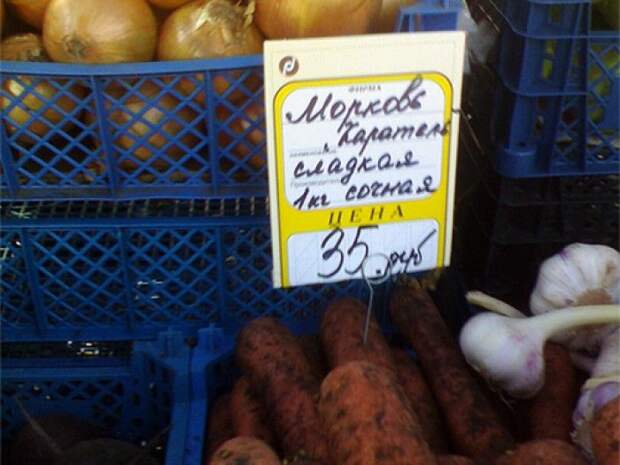 ФИРМА
Морковь
"Каратель"
сладкая
1кг сочная
ЦЕНА
35 руб